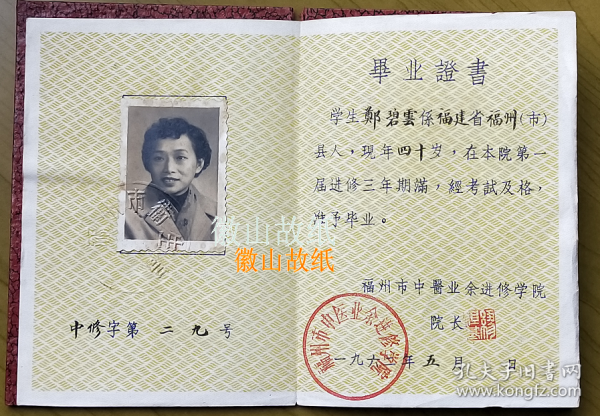 畢业證書
学生鄭碧雲係福建省福州(市)
县人，現年四十岁，在本院第一
届进修三年期滿，經考試及格，
准予毕业。
福州市中醫业余进修学院
院长
一九六 年五月 日
福州市中医业余进修学院
中修字第二九号
徽山故纸
徽山故纸
孔夫子旧书网
www.kongfz.com